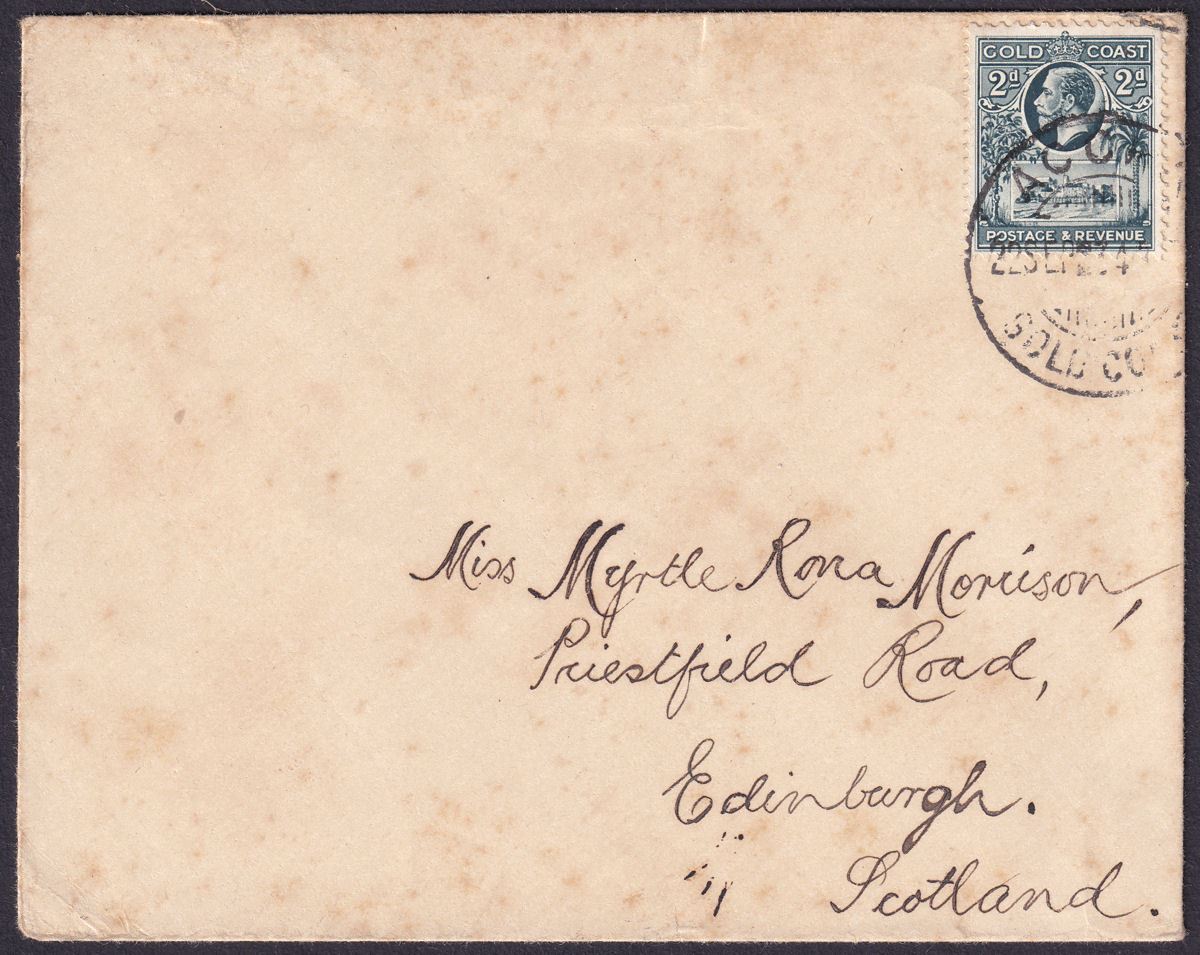 GOLD COAST
2d 2d
POSTAGE & REVENUE
GOLD
Miss Myrtle Rona Morrison,
Priestfield Road,
Edinburgh.
Scotland.